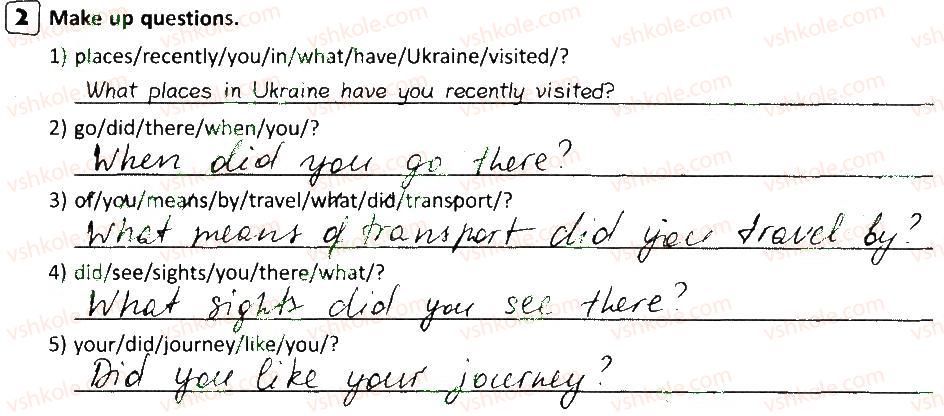 2 Make up questions.
1) places/recently/you/in/what/have/Ukraine/visited/?
What places in Ukraine have you recently visited?
2) go/did/there/when/you/?
When did you go there?
3) of/you/means/by/travel/what/did/transport/?
What means of transport did you travel by?
4) did/see/sights/you/there/what/?
What sights did you see there?
5) your/did/journey/like/you/?
Did you like your journey?